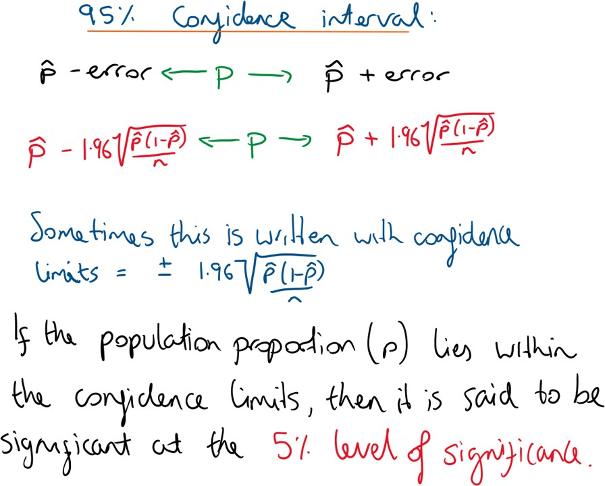 95% Confidence interval:
p̂ - error ← p → p̂ + error
p̂ - 1.96√(p̂(1-p̂)/n) ← p → p̂ + 1.96√(p̂(1-p̂)/n)
Sometimes this is written with confidence
limits = ± 1.96√(p̂(1-p̂)/n)
If the population proportion (p) lies within
the confidence limits, then it is said to be
significant at the 5% level of significance.